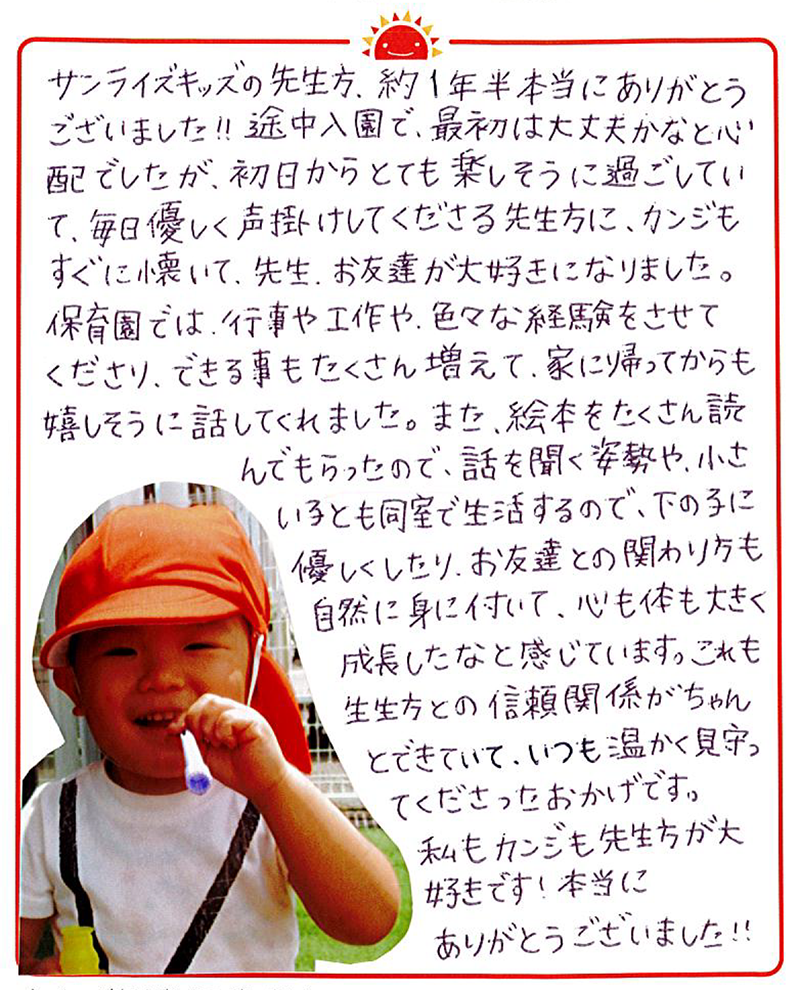 サンライズキッズの先生方、約1年半本当にありがとう
ございました!! 途中入園で、最初は大丈夫かなと心
配でしたが、初日からとても楽しそうに過ごしてい
て、毎日優しく声掛けしてくださる先生方に、カンジも
すぐに懐いて、先生、お友達が大好きになりました。
保育園では、行事や工作や、色々な経験をさせて
くださり、できる事もたくさん増えて、家に帰ってからも
嬉しそうに話してくれました。また、絵本をたくさん読
んでもらったので、話を聞く姿勢や、小さ
い子とも同室で生活するので、下の子に
優しくしたり、お友達との関わり方も
自然に身に付いて、心も体も大きく
成長したなと感じています。これも
生生方との信頼関係がちゃん
とできていて、いつも温かく見守っ
てくださったおかげです。
私もカンジも先生方が大
好きです！本当に
ありがとうございました!!